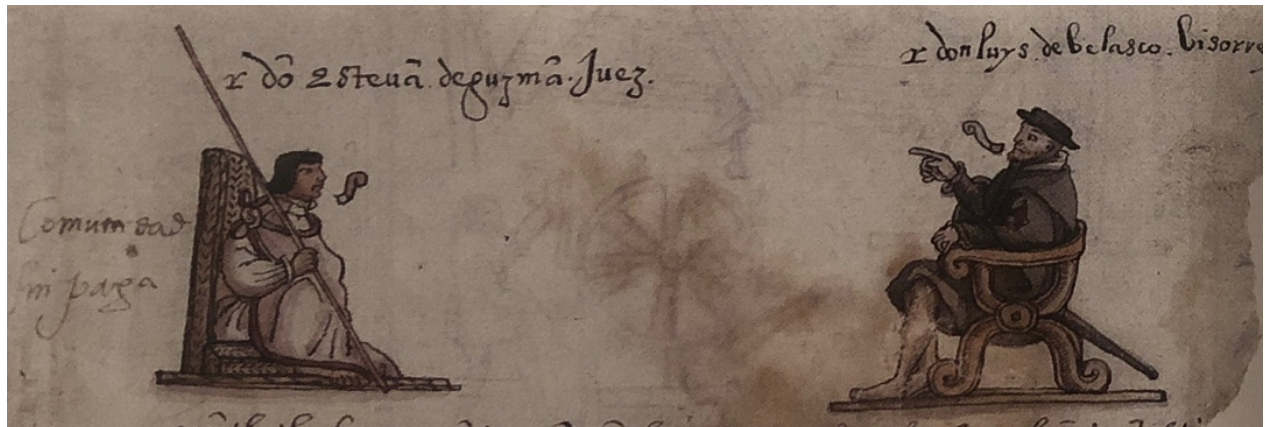 r dõ Estevã. deguzmã. Juez.
r don luys. de belasco. bisorre
Comunidad
ni paga